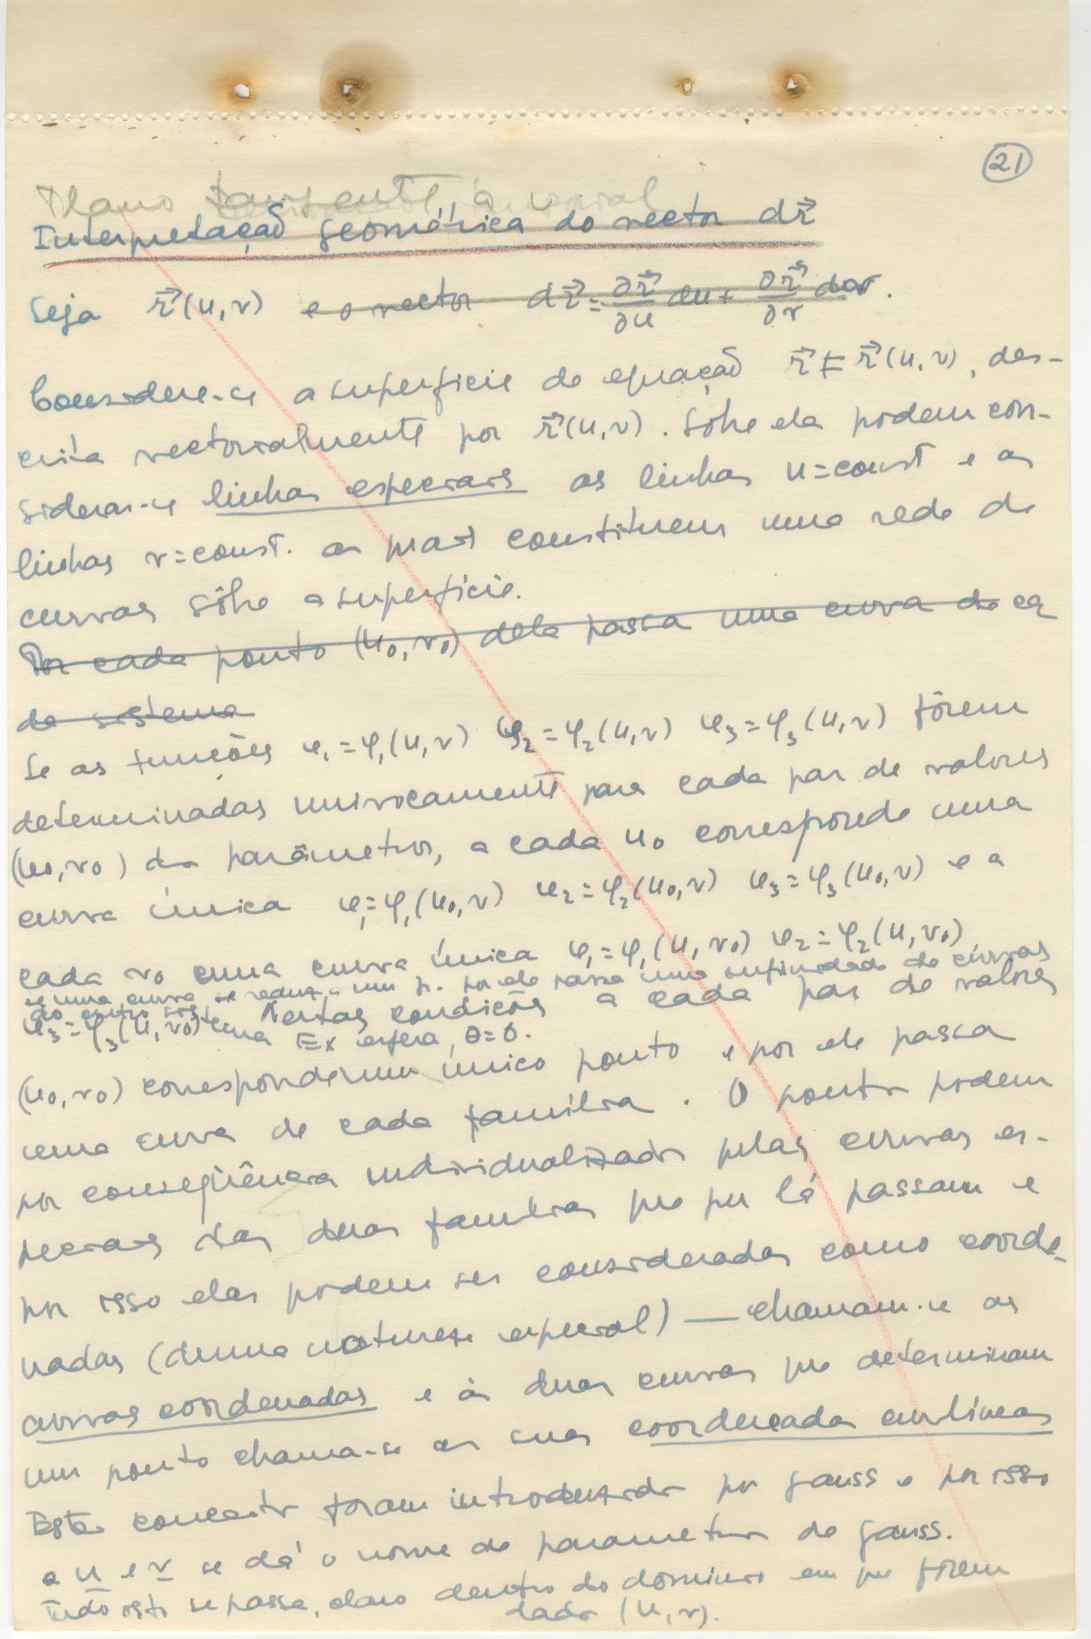 21
Plano tangente à normal
Interpretação geométrica do vector dr⃗
Seja r⃗(u,v) e o vector dr⃗ = ∂r⃗/∂u du + ∂r⃗/∂v dv.
Considere-se a superfície de equação r⃗ = r⃗(u,v), des-
crita vectorialmente por r⃗(u,v). Sôbre ela podem con-
siderar-se linhas especiais as linhas u=const e as
linhas v=const. as quais constituem uma rede de
curvas sôbre a superfície.
Por cada ponto (u₀,v₀) dela passa uma curva de eq
do sistema
Se as funções φ₁=φ₁(u,v) φ₂=φ₂(u,v) φ₃=φ₃(u,v) fôrem
determinadas univocamente para cada par de valores
(u₀,v₀) dos parâmetros, a cada u₀ corresponde uma
curva única φ₁=φ₁(u₀,v) φ₂=φ₂(u₀,v) φ₃=φ₃(u₀,v) e a
cada v₀ uma curva única φ₁=φ₁(u,v₀) φ₂=φ₂(u,v₀)
se uma curva se reduz a um p. por ele passa uma infinidade de curvas
do outro sistema Ex esfera, θ=0.
φ₃=φ₃(u,v₀) Nestas condições a cada par de valores
(u₀,v₀) corresponde um único ponto e por ele passa
uma curva de cada família. O ponto podem
por conseqüência individualizados pelas curvas es-
peciais das duas famílias que por lá passam e
por isso elas podem ser consideradas como coorde-
nadas (duma natureza especial) — chamam-se as
curvas coordenadas e às duas curvas que determinam
um ponto chama-se as suas coordenadas curvlíneas
Estes conceitos foram introduzidos por Gauss e por isso
a u e v se dá o nome de parametros de Gauss.
Tudo isto se passa, claro dentro do dominio em que forem
dados (u,v).